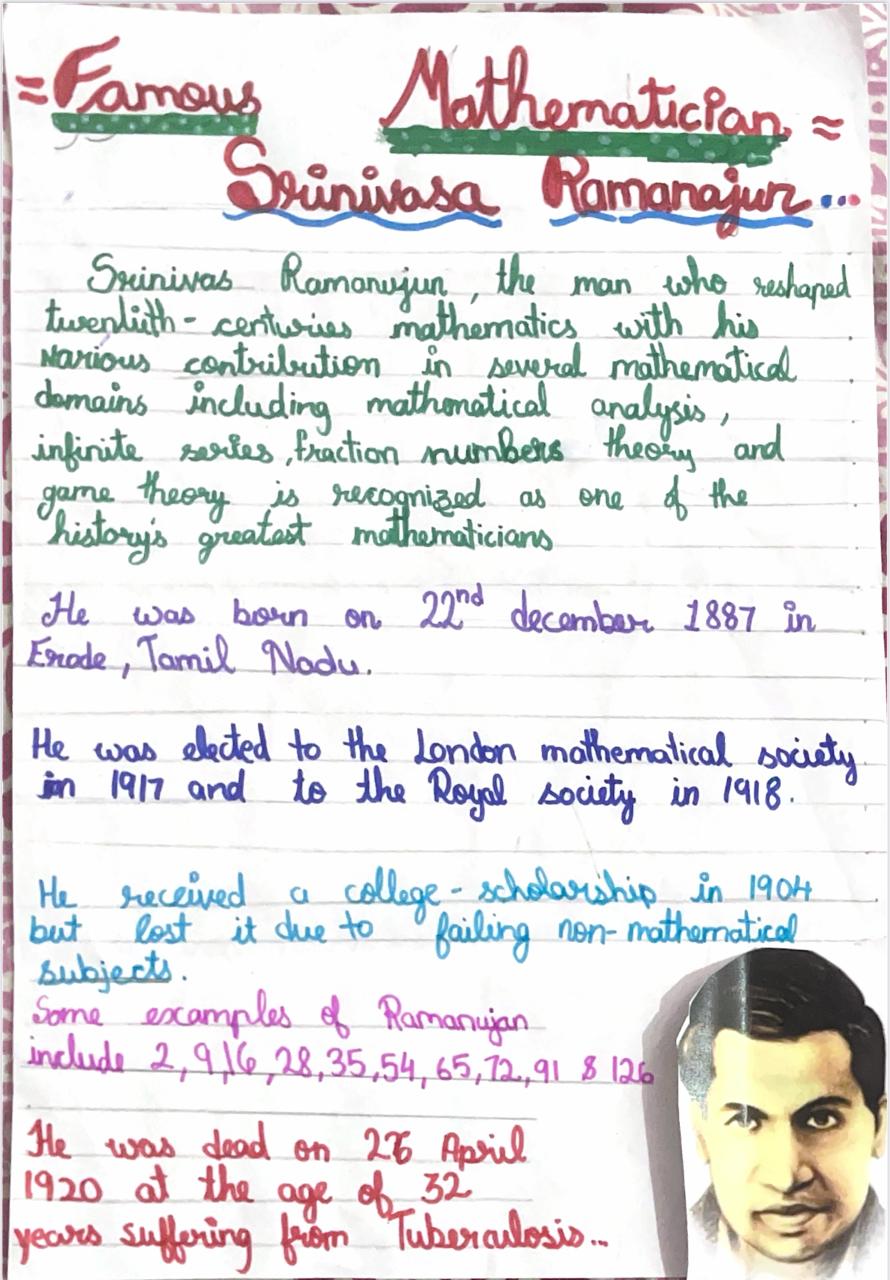 = Famous Mathematician =
Srinivasa Ramanajun...
Srinivas Ramanujun, the man who reshaped
twentiith-centuries mathematics with his
various contribution in several mathematical
domains including mathmatical analysis,
infinite series, fraction numbers theory and
game theory is recognized as one of the
history's greatest mathematicians
He was born on 22nd december 1887 in
Erode, Tamil Nadu.
He was elected to the London mathematical society
in 1917 and to the Royal society in 1918.
He received a college-scholarship in 1904
but lost it due to failing non-mathematical
subjects.
Some examples of Ramanujan
include 2, 9, 16, 28, 35, 54, 65, 72, 91 & 126
He was dead on 26 April
1920 at the age of 32
years suffering from Tuberculosis...